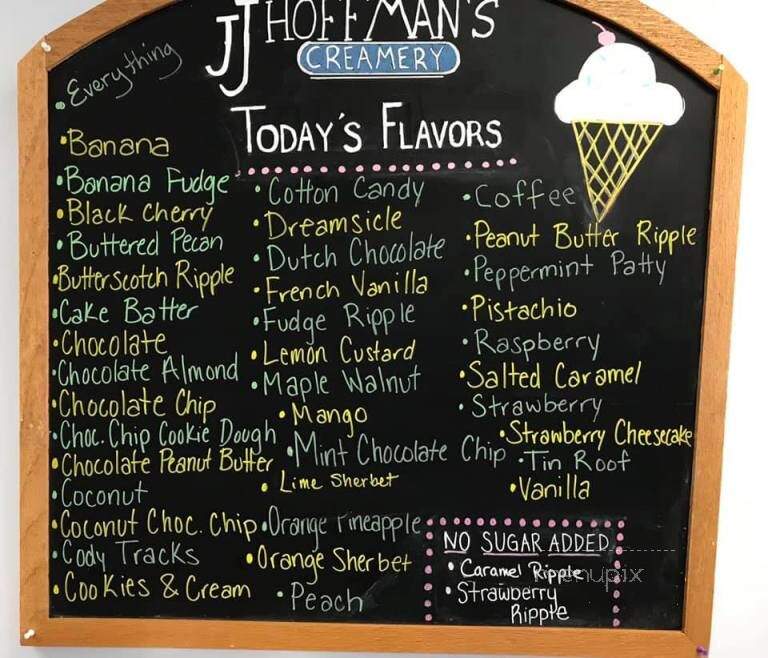 JJ HOFFMAN'S
CREAMERY
TODAY'S FLAVORS
• Everything
• Banana
• Banana Fudge
• Black Cherry
• Buttered Pecan
• Butterscotch Ripple
• Cake Batter
• Chocolate
• Chocolate Almond
• Chocolate Chip
• Choc. Chip Cookie Dough
• Chocolate Peanut Butter
• Coconut
• Coconut Choc. Chip
• Cody Tracks
• Cookies & Cream
• Cotton Candy
• Dreamsicle
• Dutch Chocolate
• French Vanilla
• Fudge Ripple
• Lemon Custard
• Maple Walnut
• Mango
• Mint Chocolate Chip
• Lime Sherbet
• Orange Pineapple
• Orange Sherbet
• Peach
• Coffee
• Peanut Butter Ripple
• Peppermint Patty
• Pistachio
• Raspberry
• Salted Caramel
• Strawberry
• Strawberry Cheesecake
• Tin Roof
• Vanilla
NO SUGAR ADDED
• Caramel Ripple
• Strawberry
Ripple
menupix